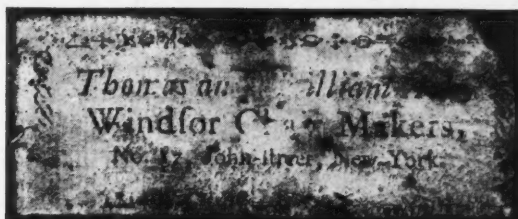 Thomas and William
Windſor Chair Makers,
No. 17, John-ſtreet, New-York.